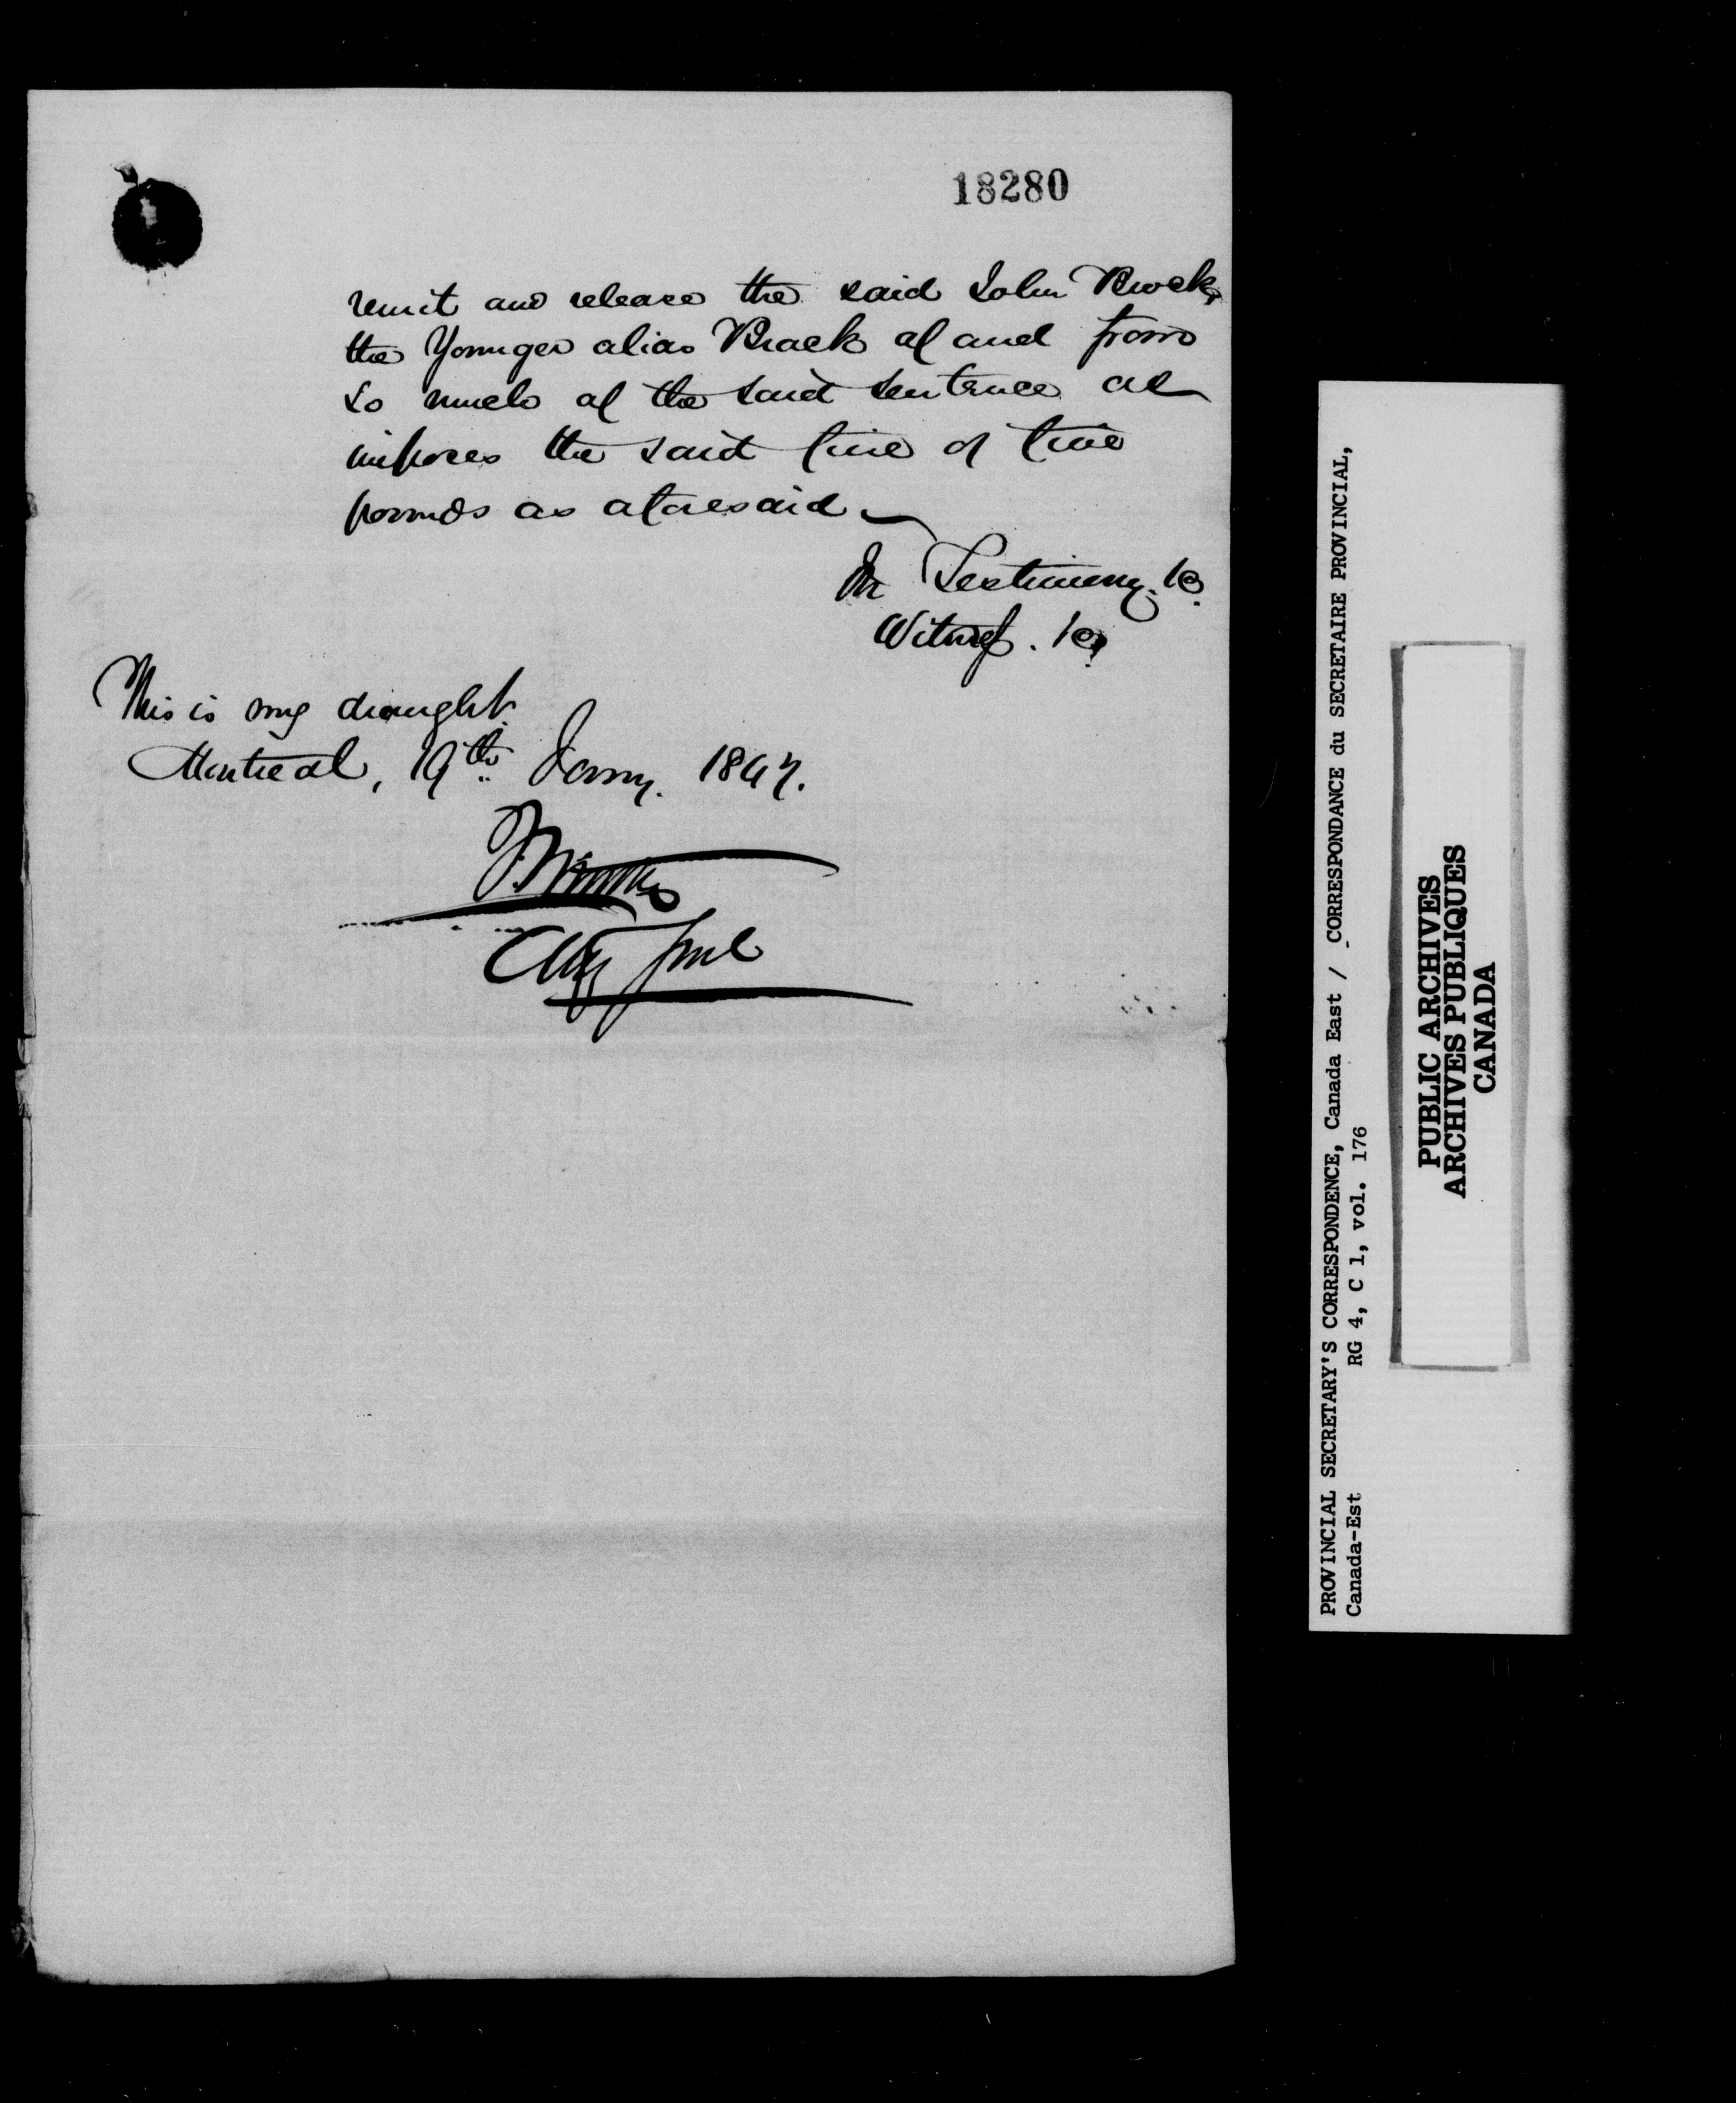 18280
remit and release the said John Brock
the Younger alias Brack of and from
so much of the said sentence as
imposes the said fine of five
pounds as aforesaid
In Testimony. &c.
Witness. &c.
This is my draught.
Montreal, 19th Jany. 1847.
Atty Genl
PROVINCIAL SECRETARY'S CORRESPONDENCE, Canada East / CORRESPONDANCE du SECRETAIRE PROVINCIAL,
Canada-Est RG 4, C 1, vol. 176
PUBLIC ARCHIVES
ARCHIVES PUBLIQUES
CANADA